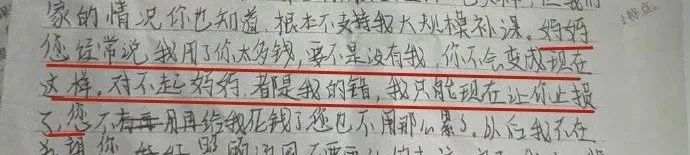 家的情况你也知道，根本不支持我大规模补课。妈妈
您经常说我用了你太多钱，要不是没有我，你不会变成现在
这样。对不起妈妈，都是我的错，我只能现在让你止损
了，您不用再给我花钱了您也不用那么累了。以后我不在